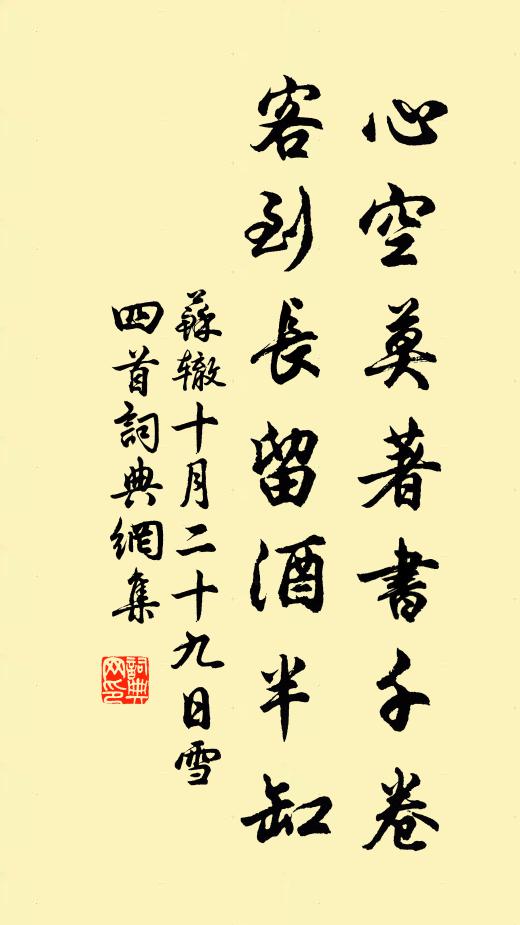 心空莫著書千卷
客到長留酒半缸
蘇轍十月二十九日雪
四首詞典網集
詞典網印